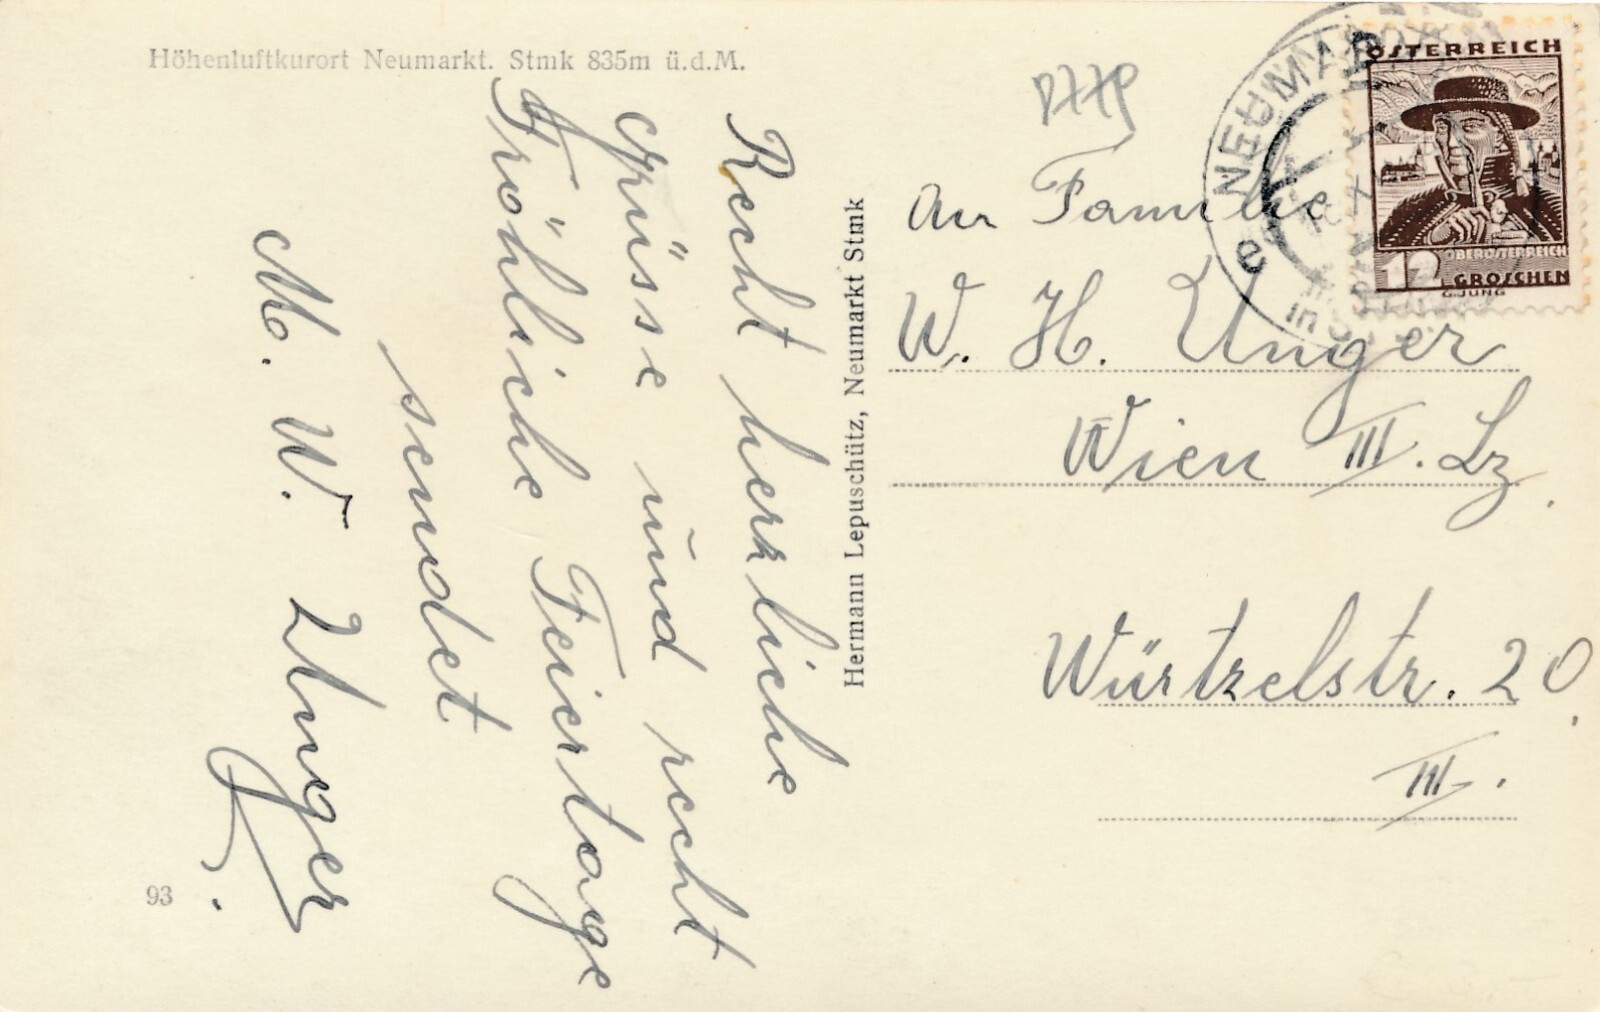 Höhenluftkurort Neumarkt. Stmk 835m ü.d.M.
Recht herzliche
Grüsse und recht
Fröhliche Feiertage
sendet
M. W. Unger.
93
Hermann Lepuschütz, Neumarkt Stmk
An Familie
W. H. Unger
Wien III. Lz.
Würtzelstr. 20.
III.
NEUMARKT
in S
e
ÖSTERREICH
OBERÖSTERREICH
12 GROSCHEN
G.JUNG